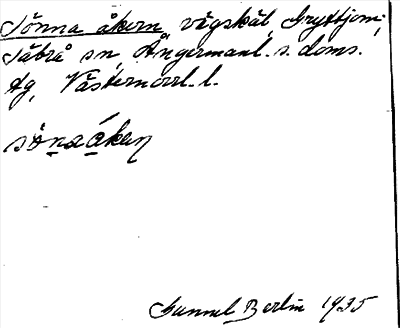 Sönna åkern vägskäl, Gryttjom,
Säbrå sn, Ångermanl. s. doms.
dg, Västernorrl. l.
Gunnel Berlin 1935